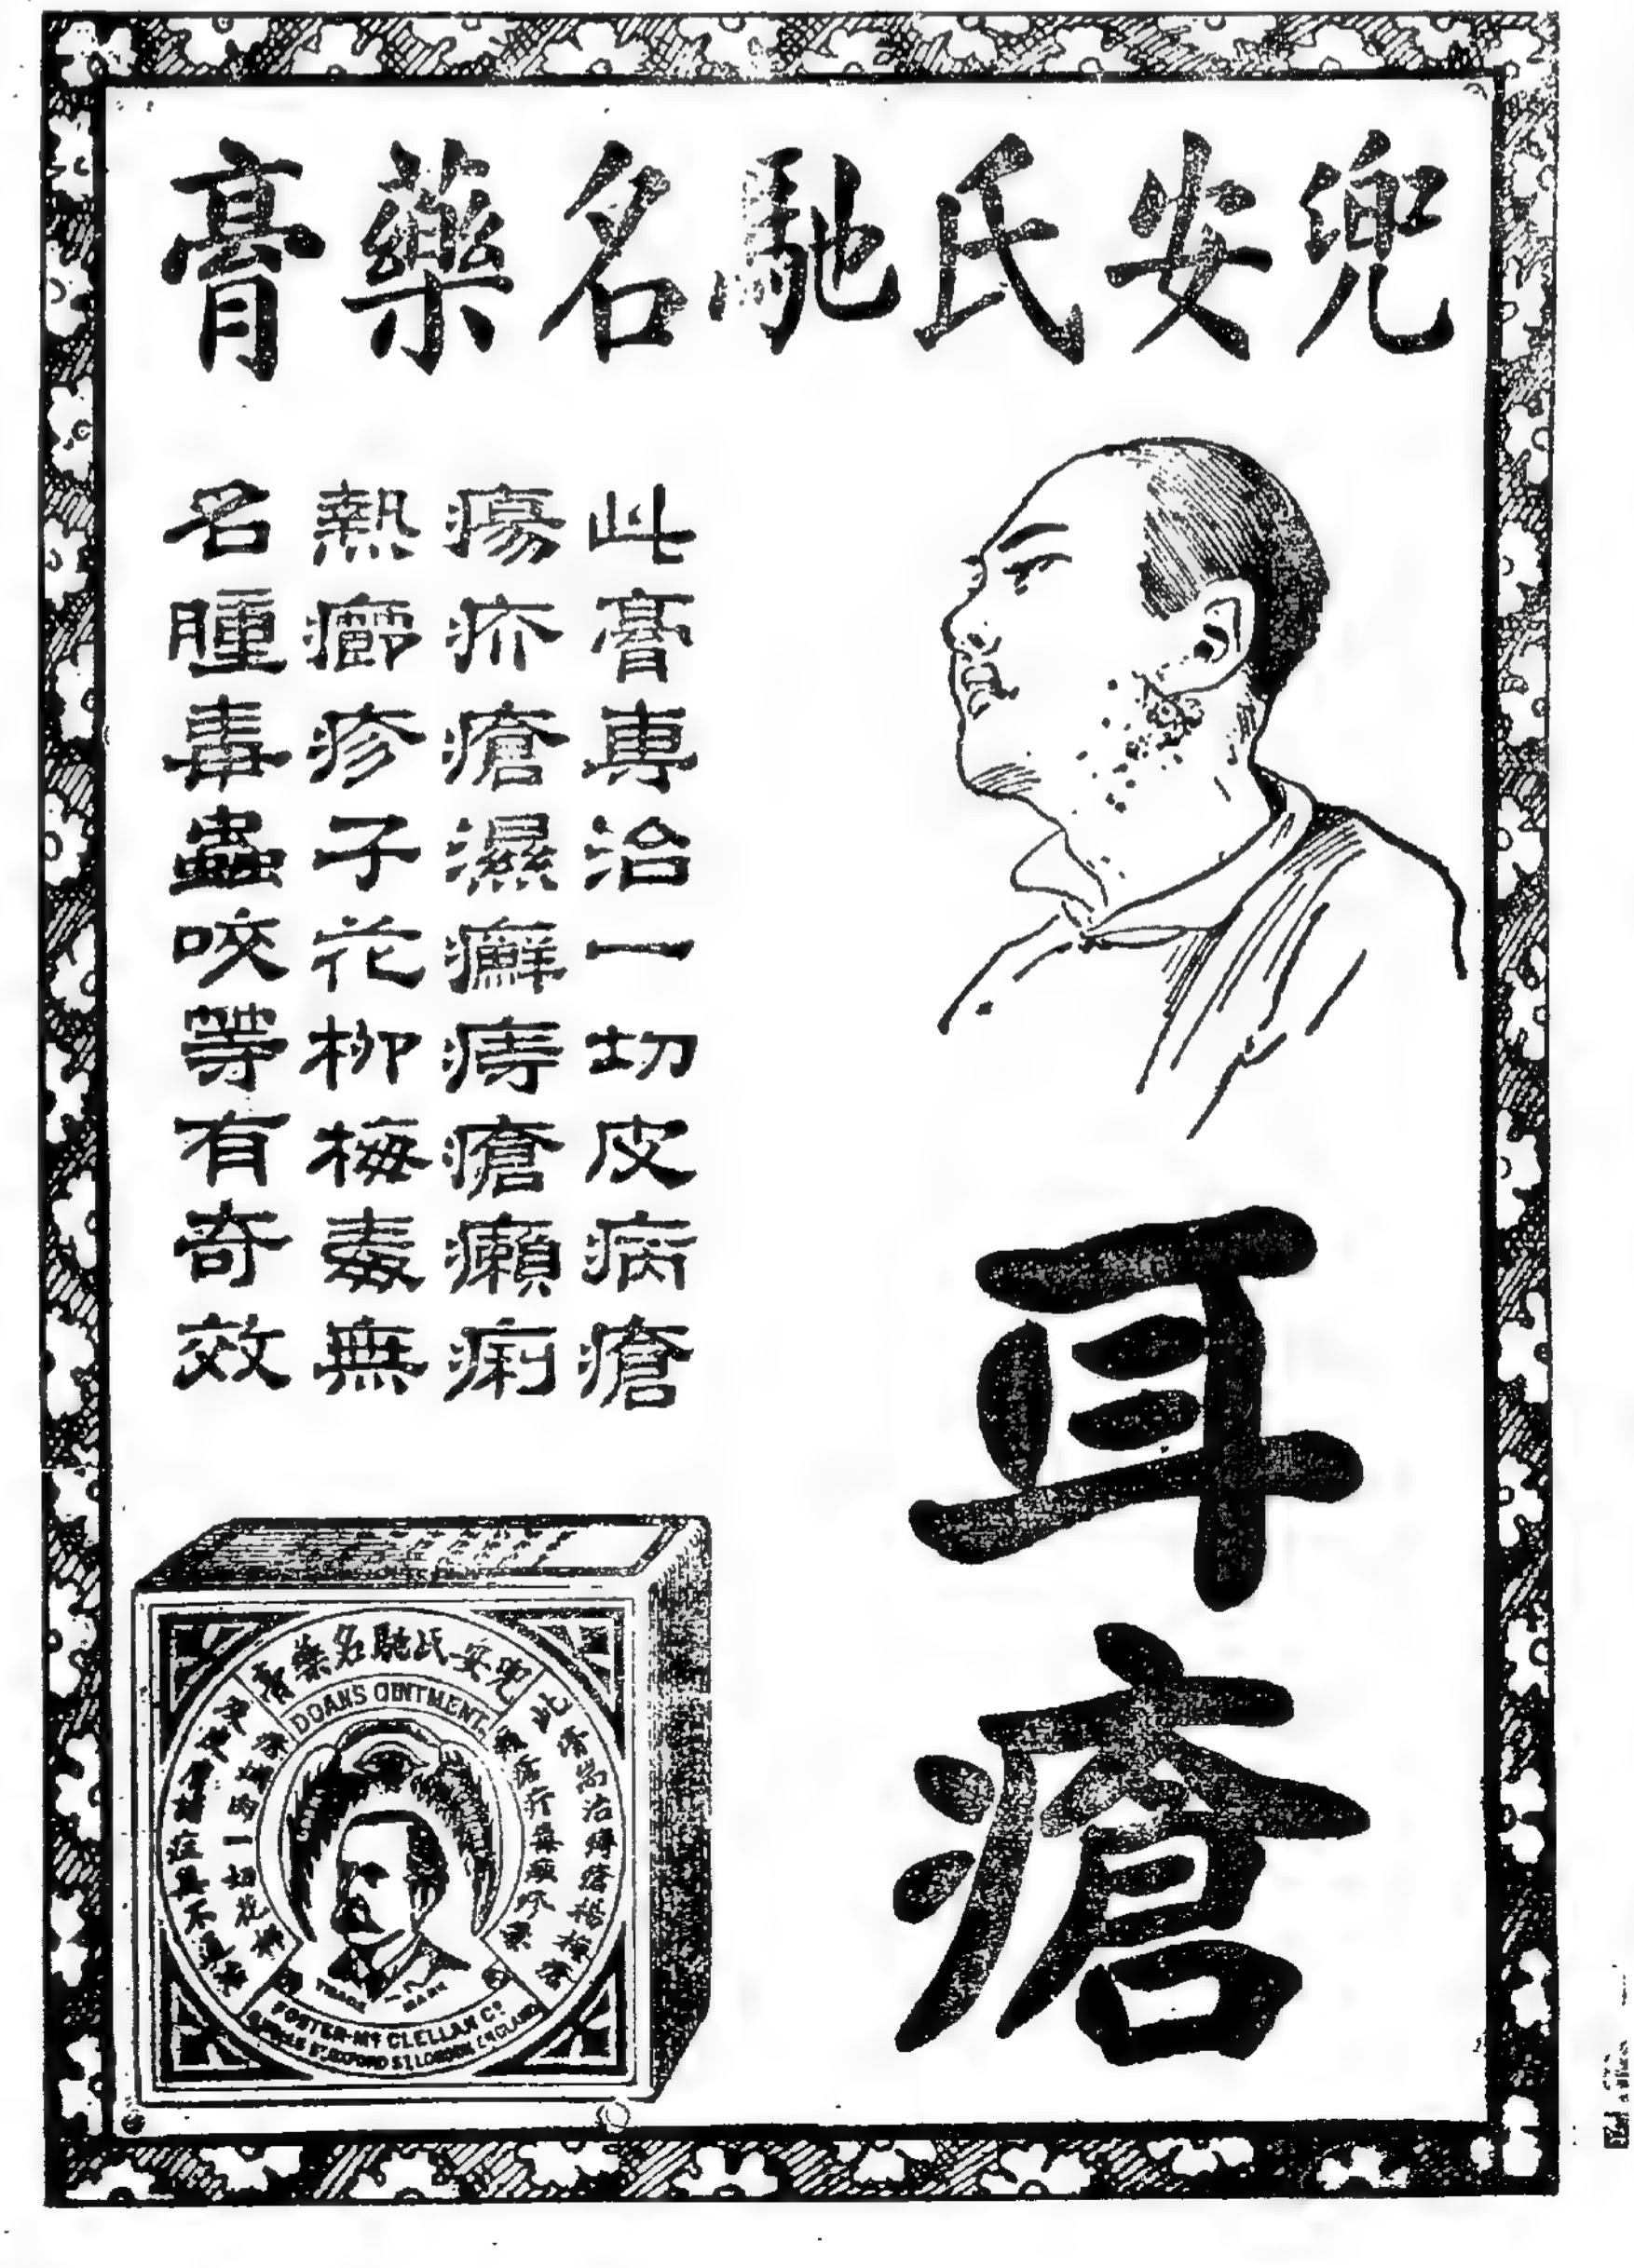 兜安氏馳名藥膏
此膏專治一切皮病瘡
瘍疥瘡濕癬痔瘡癩痢
熱癤疹子花柳梅毒無
名腫毒蟲咬等有奇效
耳瘡
兜安氏馳名藥膏
DOANS OINTMENT.
TRADE MARK
FOSTER-McCLELLAN Co